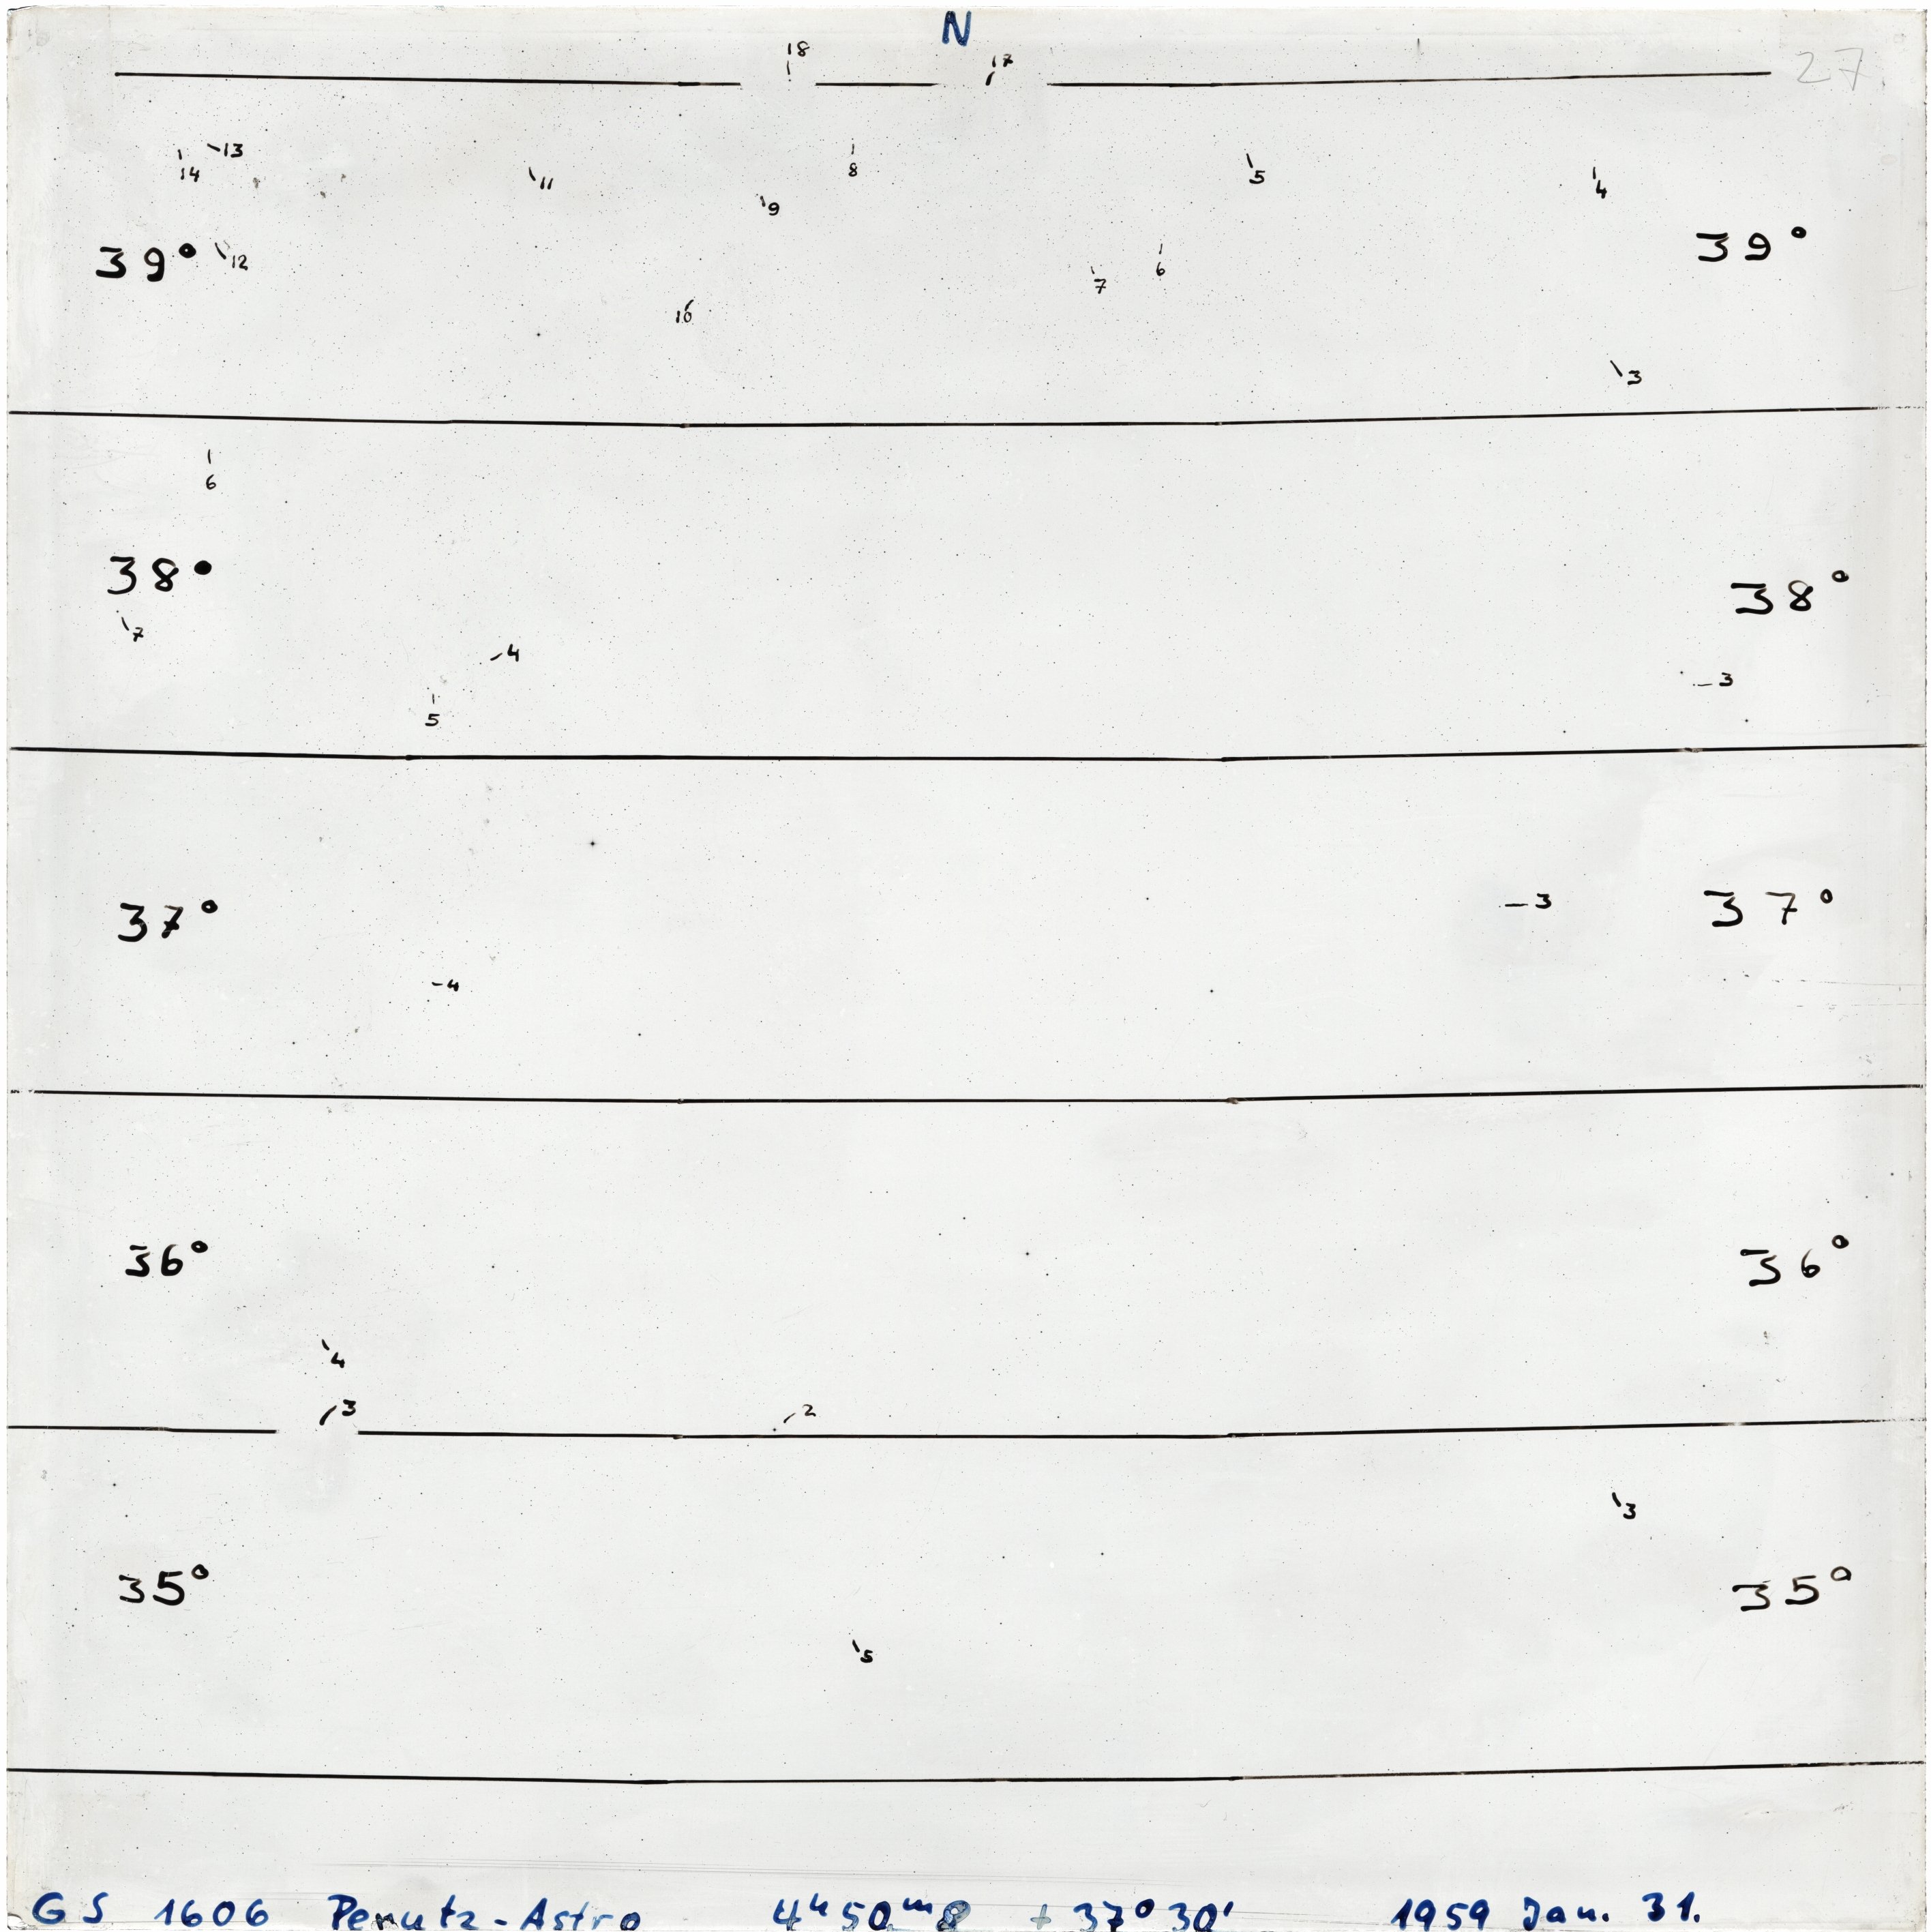 N
18 17 27
13
14 11 8 5 4
9
39° 12 6 39°
7
10
3
6
38° 38°
7
4
3
5
37° 3 37°
4
36° 36°
4
3 2
3
35° 35°
5
GS 1606 Perutz-Astro 4h50m8 + 37°30' 1959 Jan. 31.